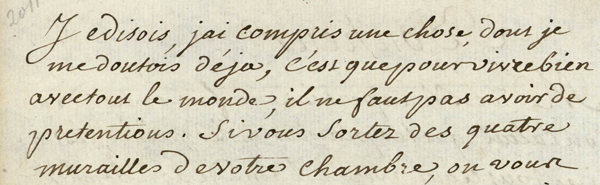 Je disois, jai compris une chose dont je
me doutois déja, c'est que pour vivre bien
avec tout le monde, il ne faut pas avoir de
pretentions. Si vous sortez des quatre
murailles de votre chambre, on vous